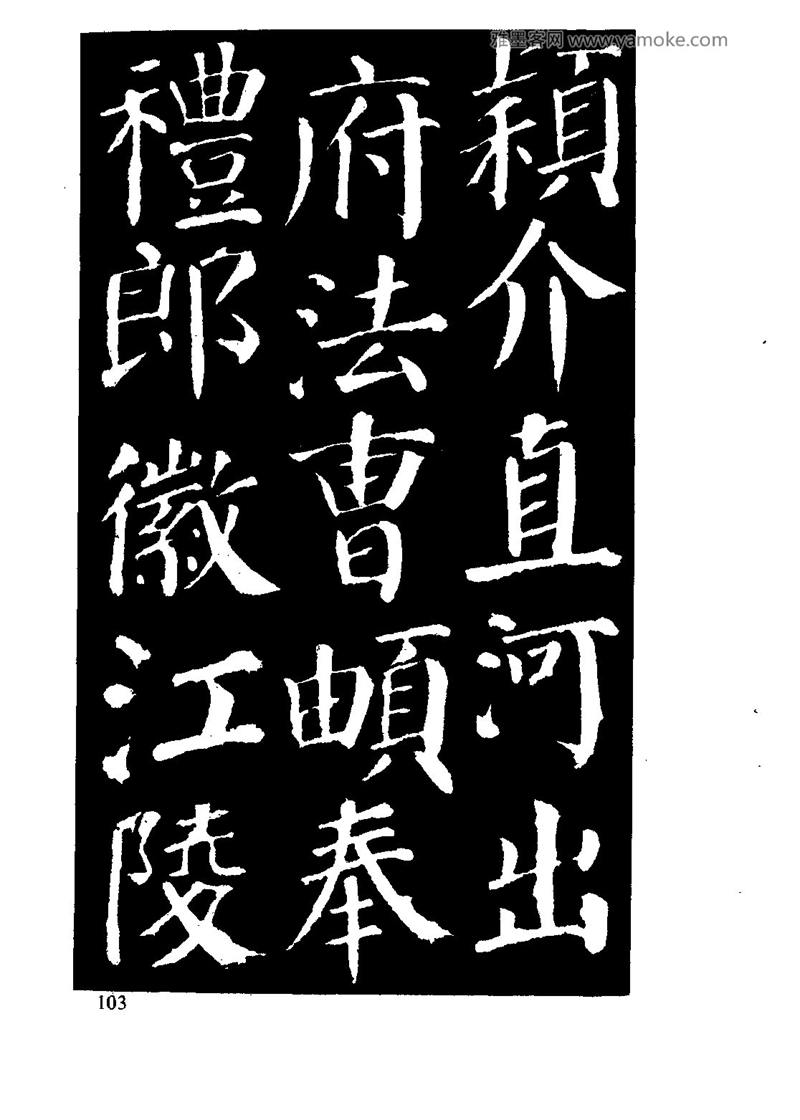 雅墨客网 www.yamoke.com
穎介直河出
府法曹頔奉
禮郎徽江陵
103